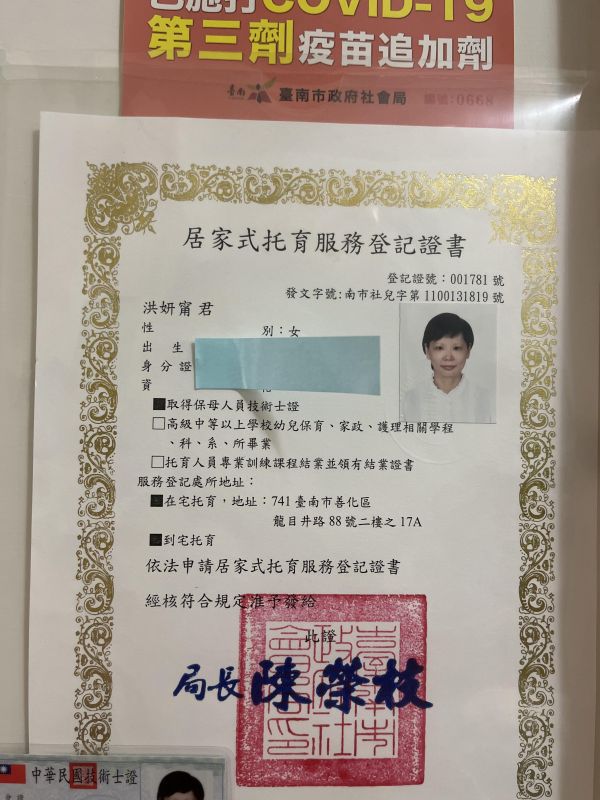 已施打COVID-19
第三劑疫苗追加劑
臺南 臺南市政府社會局 編號:0668
居家式托育服務登記證書
登記證號：001781 號
發文字號:南市社兒字第 1100131819 號
洪妍甯 君
性 別：女
出 生
身 分 證
資
■取得保母人員技術士證
□高級中等以上學校幼兒保育、家政、護理相關學程
、科、系、所畢業
□托育人員專業訓練課程結業並領有結業證書
服務登記處所地址：
■在宅托育，地址：741 臺南市善化區
龍目井路 88 號二樓之 17A
■到宅托育
依法申請居家式托育服務登記證書
經核符合規定准予發給
此證
局長 陳榮枝
中華民國技術士證